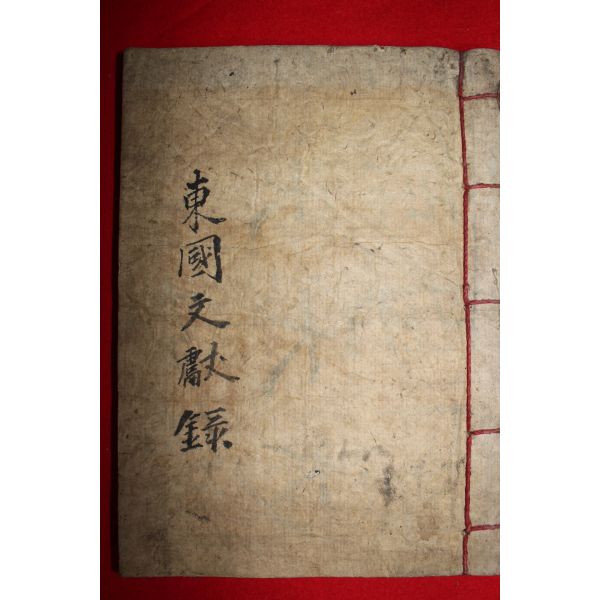 東國文獻録